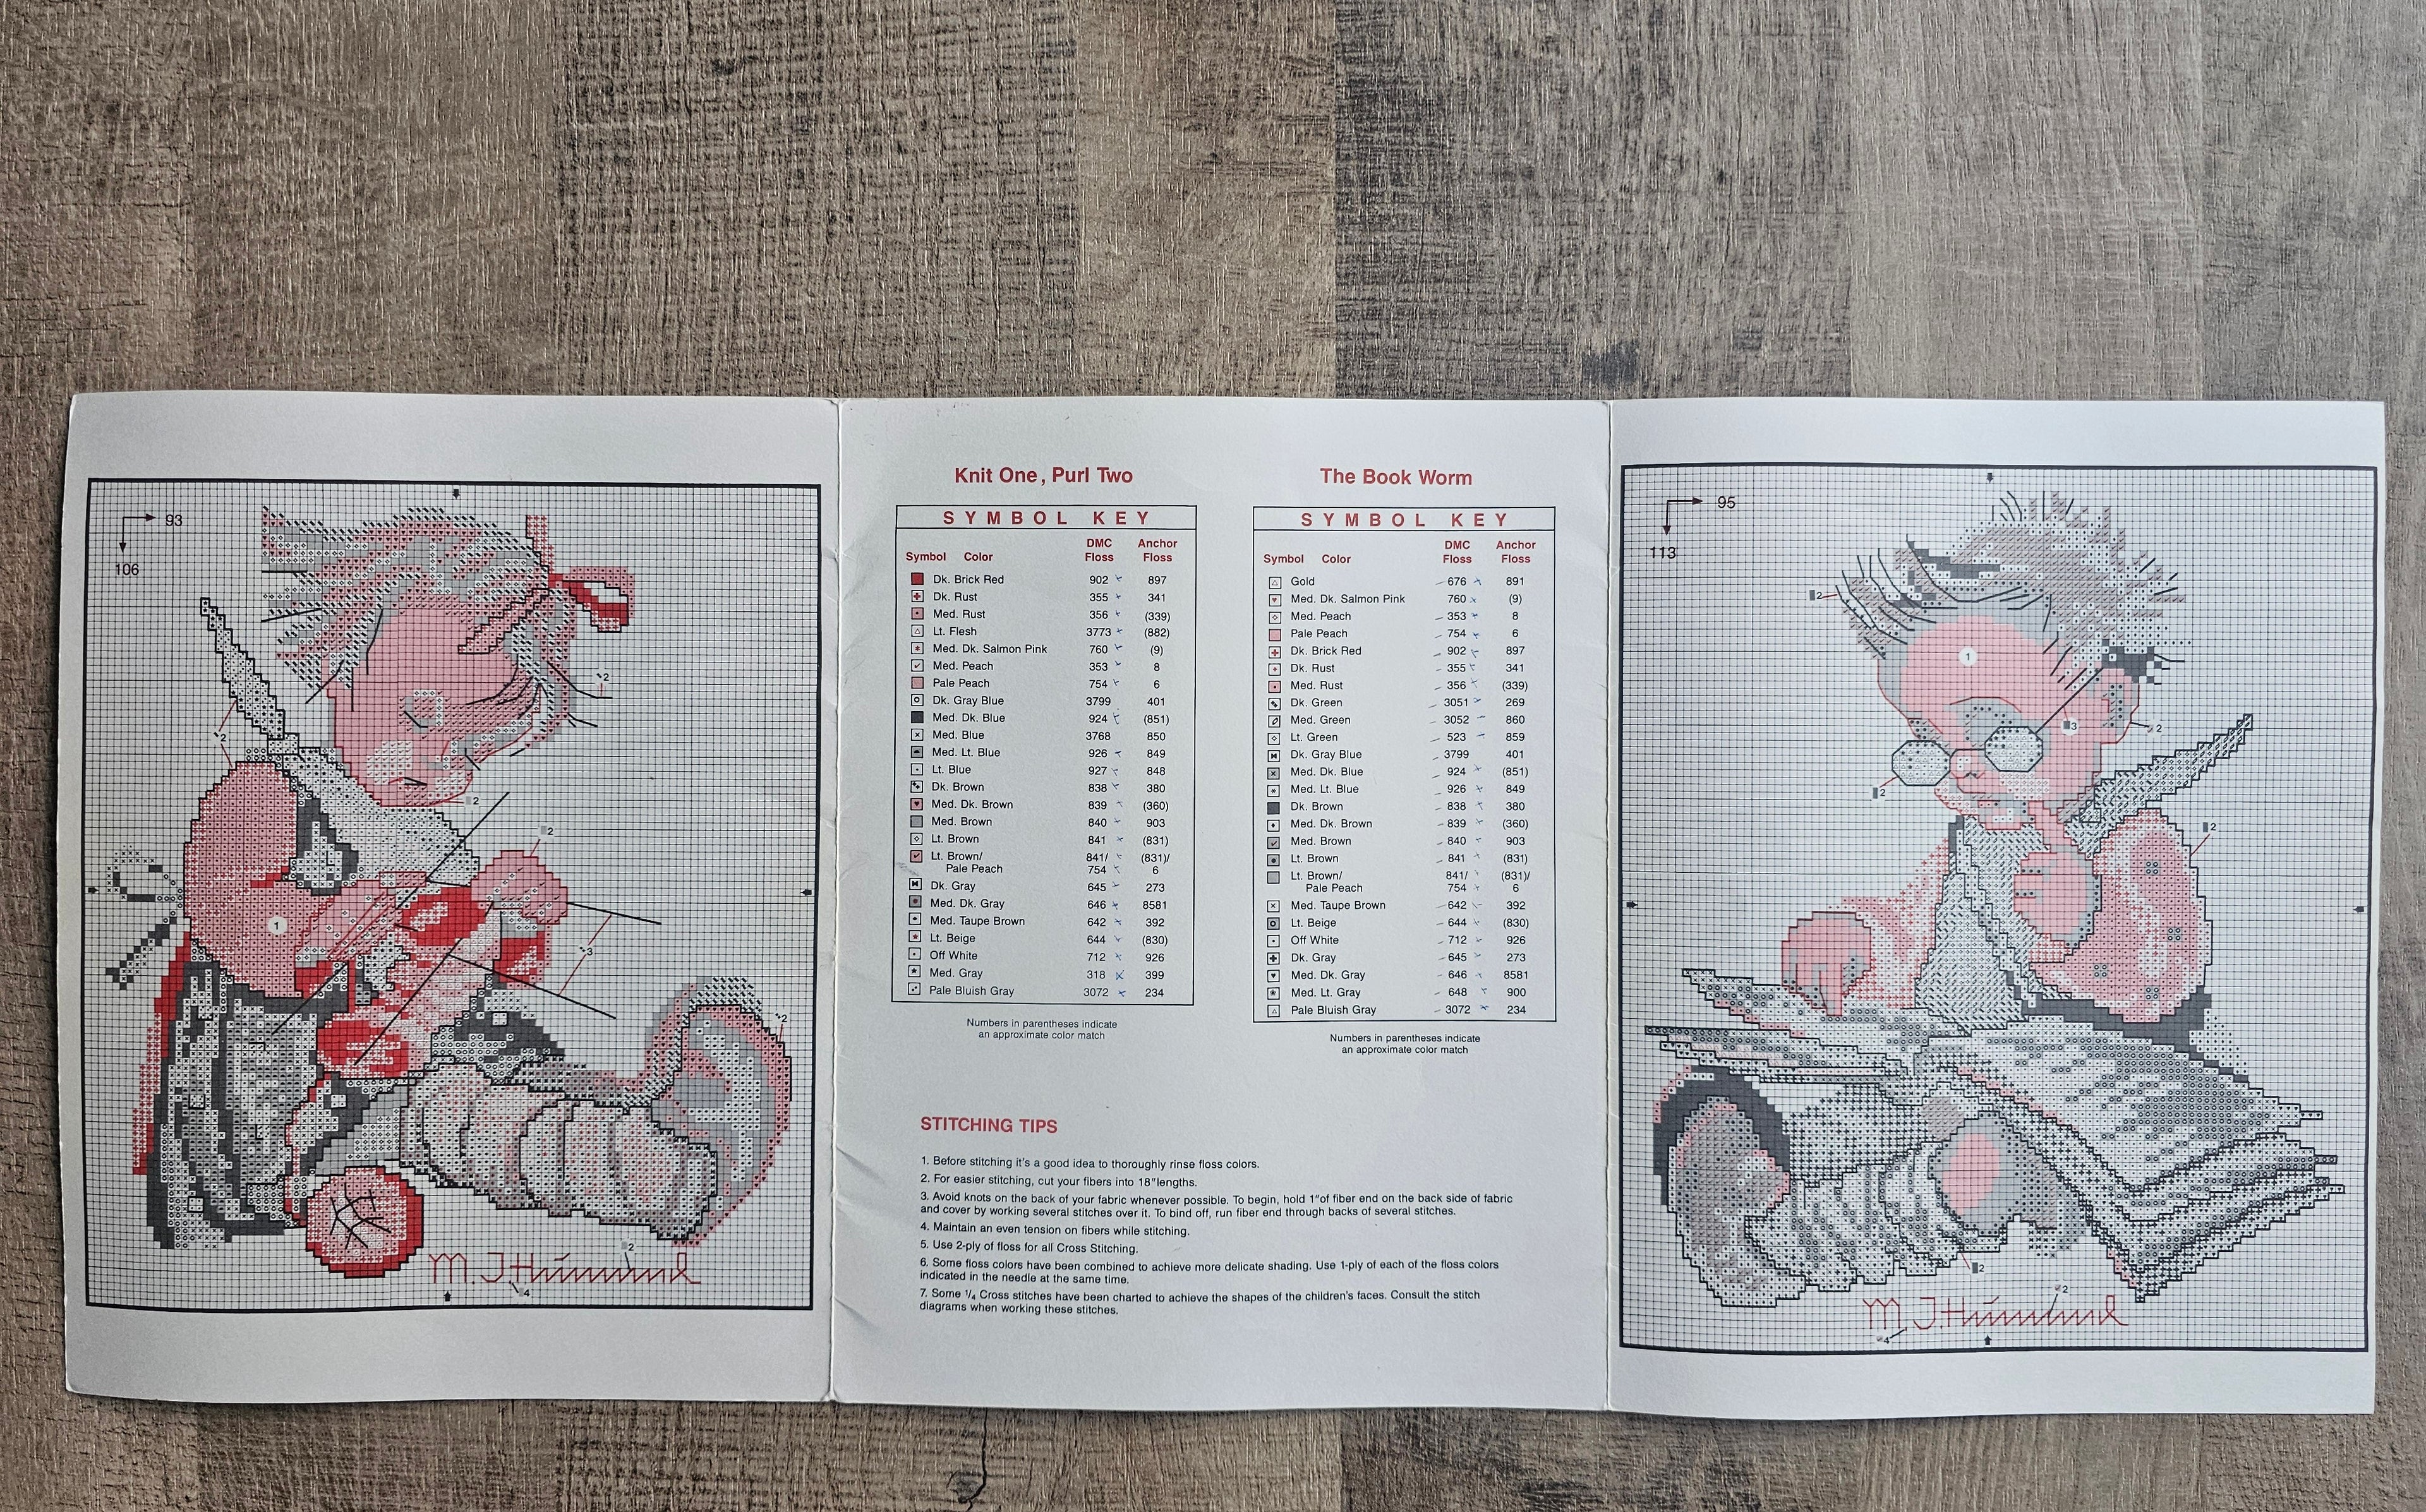 93
106
2
2
2
2
1
3
2
2
4
M.J.Hummel
Knit One, Purl Two
SYMBOL KEY
Symbol Color DMC Floss Anchor Floss
Dk. Brick Red 902 897
Dk. Rust 355 341
Med. Rust 356 (339)
Lt. Flesh 3773 (882)
Med. Dk. Salmon Pink 760 (9)
Med. Peach 353 8
Pale Peach 754 6
Dk. Gray Blue 3799 401
Med. Dk. Blue 924 (851)
Med. Blue 3768 850
Med. Lt. Blue 926 849
Lt. Blue 927 848
Dk. Brown 838 380
Med. Dk. Brown 839 (360)
Med. Brown 840 903
Lt. Brown 841 (831)
Lt. Brown/ 841/ (831)/
Pale Peach 754 6
Dk. Gray 645 273
Med. Dk. Gray 646 8581
Med. Taupe Brown 642 392
Lt. Beige 644 (830)
Off White 712 926
Med. Gray 318 399
Pale Bluish Gray 3072 234
Numbers in parentheses indicate
an approximate color match
The Book Worm
SYMBOL KEY
Symbol Color DMC Floss Anchor Floss
Gold 676 891
Med. Dk. Salmon Pink 760 (9)
Med. Peach 353 8
Pale Peach 754 6
Dk. Brick Red 902 897
Dk. Rust 355 341
Med. Rust 356 (339)
Dk. Green 3051 269
Med. Green 3052 860
Lt. Green 523 859
Dk. Gray Blue 3799 401
Med. Dk. Blue 924 (851)
Med. Lt. Blue 926 849
Dk. Brown 838 380
Med. Dk. Brown 839 (360)
Med. Brown 840 903
Lt. Brown 841 (831)
Lt. Brown/ 841/ (831)/
Pale Peach 754 6
Med. Taupe Brown 642 392
Lt. Beige 644 (830)
Off White 712 926
Dk. Gray 645 273
Med. Dk. Gray 646 8581
Med. Lt. Gray 648 900
Pale Bluish Gray 3072 234
Numbers in parentheses indicate
an approximate color match
STITCHING TIPS
1. Before stitching it's a good idea to thoroughly rinse floss colors.
2. For easier stitching, cut your fibers into 18" lengths.
3. Avoid knots on the back of your fabric whenever possible. To begin, hold 1" of fiber end on the back side of fabric
and cover by working several stitches over it. To bind off, run fiber end through backs of several stitches.
4. Maintain an even tension on fibers while stitching.
5. Use 2-ply of floss for all Cross Stitching.
6. Some floss colors have been combined to achieve more delicate shading. Use 1-ply of each of the floss colors
indicated in the needle at the same time.
7. Some 1/4 Cross stitches have been charted to achieve the shapes of the children's faces. Consult the stitch
diagrams when working these stitches.
95
113
2
1
3
2
2
2
2
2
4
M.J.Hummel